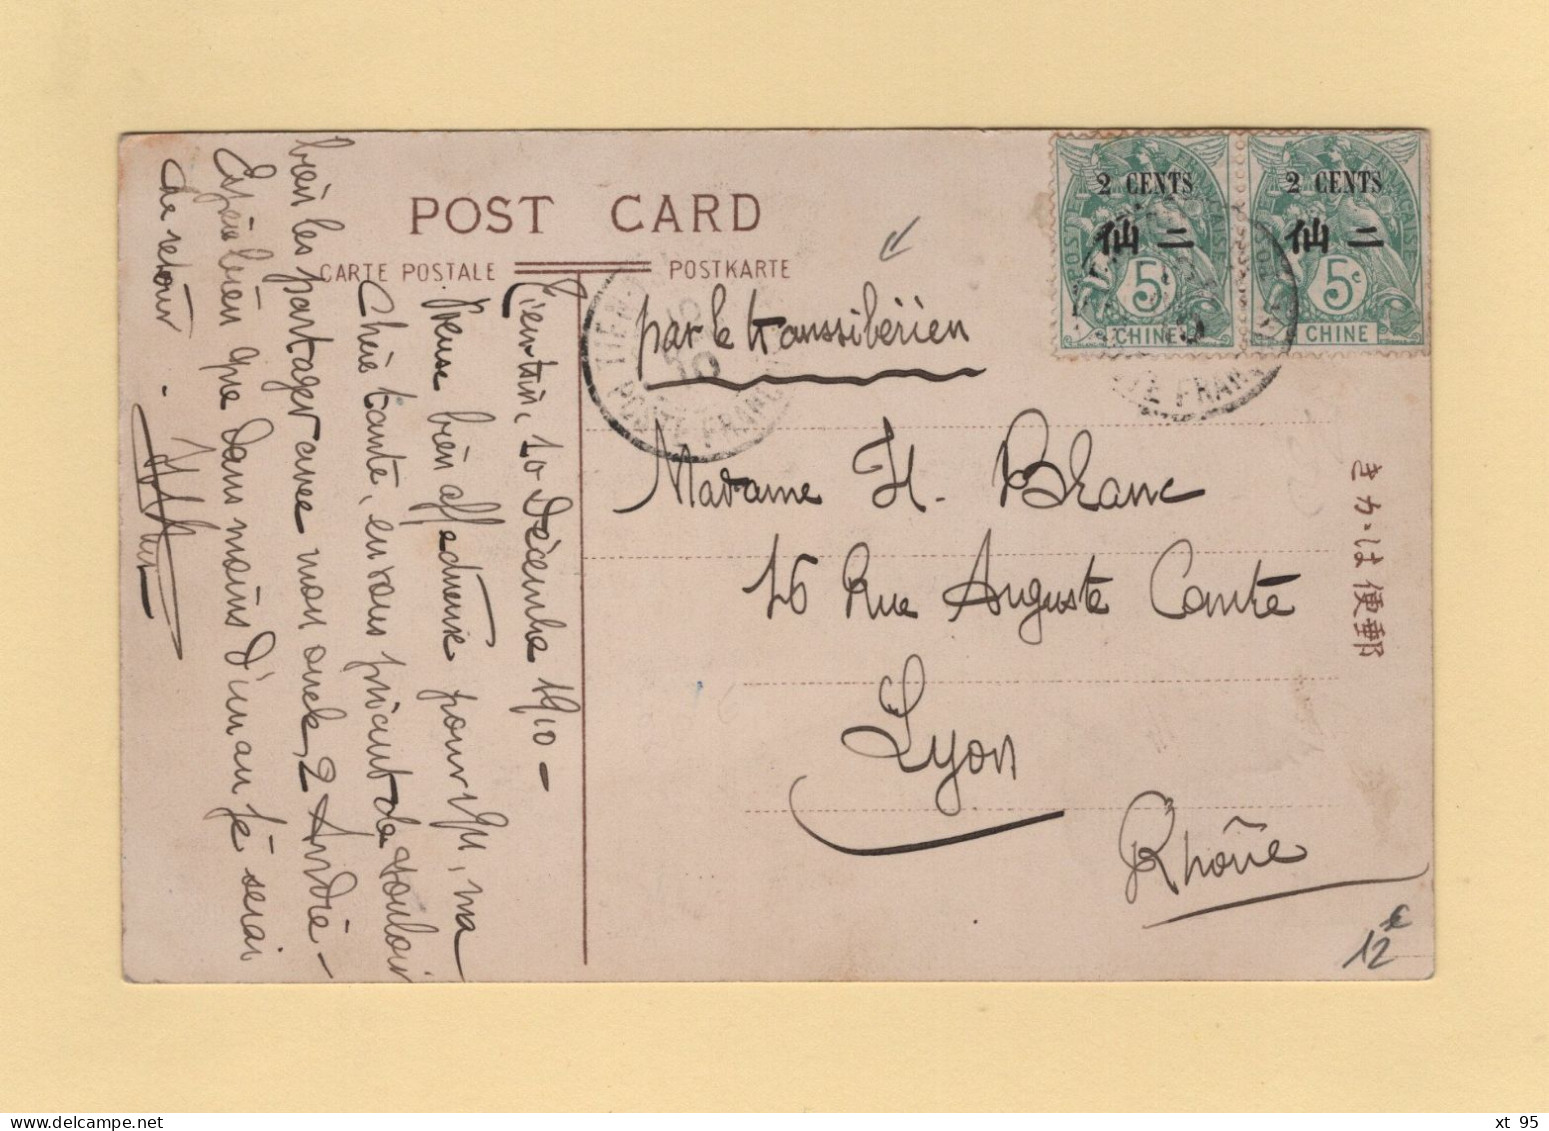 POST CARD
CARTE POSTALE
POSTKARTE
par le transsibérien
2 CENTS
仙 二
5
CHINE
2 CENTS
仙 二
5c
CHINE
TIEN
POSTE FRANC
10
TE FRAN
Madame H. Blanc
16 Rue Auguste Comte
Lyon
Rhône
きかは便郵
12€
Tientsin, 10 Décembre 1910 -
bien affectueuse pour vous, ma
Chère tante, en vous priant de vouloir
bien les partager avec mon oncle, 2 André -
Espère bien que dans moins d'un an je serai
de retour -
xt 95